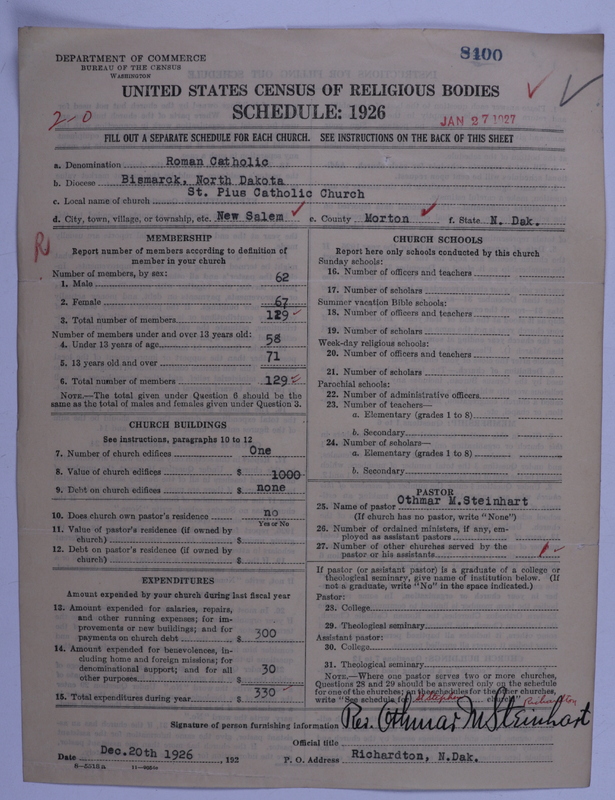 8400
DEPARTMENT OF COMMERCE
BUREAU OF THE CENSUS
WASHINGTON
UNITED STATES CENSUS OF RELIGIOUS BODIES
SCHEDULE: 1926
2-0
JAN 27 1927
FILL OUT A SEPARATE SCHEDULE FOR EACH CHURCH. SEE INSTRUCTIONS ON THE BACK OF THIS SHEET
a. Denomination Roman Catholic
b. Diocese Bismarck, North Dakota
c. Local name of church St. Pius Catholic Church
d. City, town, village, or township, etc. New Salem e. County Morton f. State N. Dak.
R
MEMBERSHIP
Report number of members according to definition of
member in your church
Number of members, by sex:
1. Male 62
2. Female 67
3. Total number of members 129
Number of members under and over 13 years old:
4. Under 13 years of age 58
5. 13 years old and over 71
6. Total number of members 129
NOTE.—The total given under Question 6 should be the
same as the total of males and females given under Question 3.
CHURCH BUILDINGS
See instructions, paragraphs 10 to 12
7. Number of church edifices One
8. Value of church edifices $ 1000
9. Debt on church edifices $ none
10. Does church own pastor's residence no
Yes or No
11. Value of pastor's residence (if owned by
church) $
12. Debt on pastor's residence (if owned by
church) $
EXPENDITURES
Amount expended by your church during last fiscal year
13. Amount expended for salaries, repairs,
and other running expenses; for im-
provements or new buildings; and for
payments on church debt $ 300
14. Amount expended for benevolences, in-
cluding home and foreign missions; for
denominational support; and for all
other purposes $ 30
15. Total expenditures during year $ 330
CHURCH SCHOOLS
Report here only schools conducted by this church
Sunday schools:
16. Number of officers and teachers
17. Number of scholars
Summer vacation Bible schools:
18. Number of officers and teachers
19. Number of scholars
Week-day religious schools:
20. Number of officers and teachers
21. Number of scholars
Parochial schools:
22. Number of administrative officers
23. Number of teachers—
a. Elementary (grades 1 to 8)
b. Secondary
24. Number of scholars—
a. Elementary (grades 1 to 8)
b. Secondary
PASTOR
25. Name of pastor Othmar M.Steinhart
(If church has no pastor, write "None")
26. Number of ordained ministers, if any, em-
ployed as assistant pastors
27. Number of other churches served by the
pastor or his assistants 1
If pastor (or assistant pastor) is a graduate of a college or
theological seminary, give name of institution below. (If
not a graduate, write "No" in the space indicated.)
Pastor:
28. College
29. Theological seminary
Assistant pastor:
30. College
31. Theological seminary
NOTE.—Where one pastor serves two or more churches,
Questions 28 and 29 should be answered only on the schedule
for one of the churches; on the schedules for the other churches,
write "See schedule for St Stephen church, Richardton
Signature of person furnishing information Rev. Othmar M Steinhart
Official title
Date Dec.20th 1926, 192 P. O. Address Richardton, N.Dak.